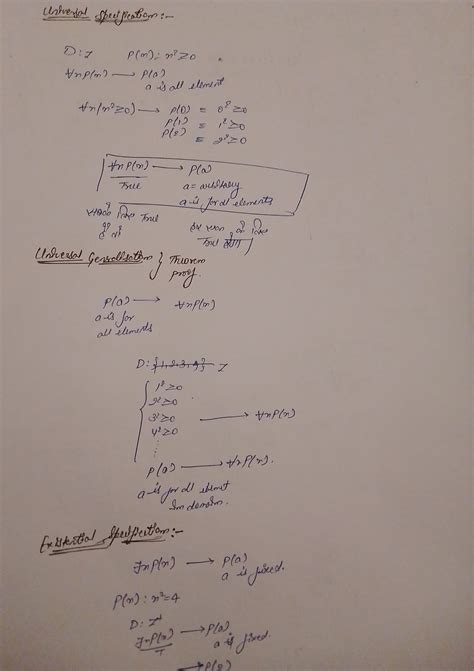 Universal Specification:-
D: Z P(n): n²≥0
∀nP(n) → P(a)
a is all element
∀n(n²≥0) → P(0) = 0²≥0
P(1) = 1²≥0
P(2) = 2²≥0
∀nP(n) → P(a)
True a = arbitrary
a is for all elements
True
True
Universal Generalisation } Theorem
proof.
P(a) → ∀nP(n)
a is for
all elements
D: {1,2,3,4} Z
1²≥0
2²≥0
3²≥0 → ∀nP(n)
4²≥0
P(a) → ∀nP(n).
a is for all elemnt
in domain.
Existential Specification:-
∃nP(n) → P(a)
a is fixed.
P(n): n²=4
D: Z⁺
∃nP(n) → P(a)
T a is fixed.
→ P(2)